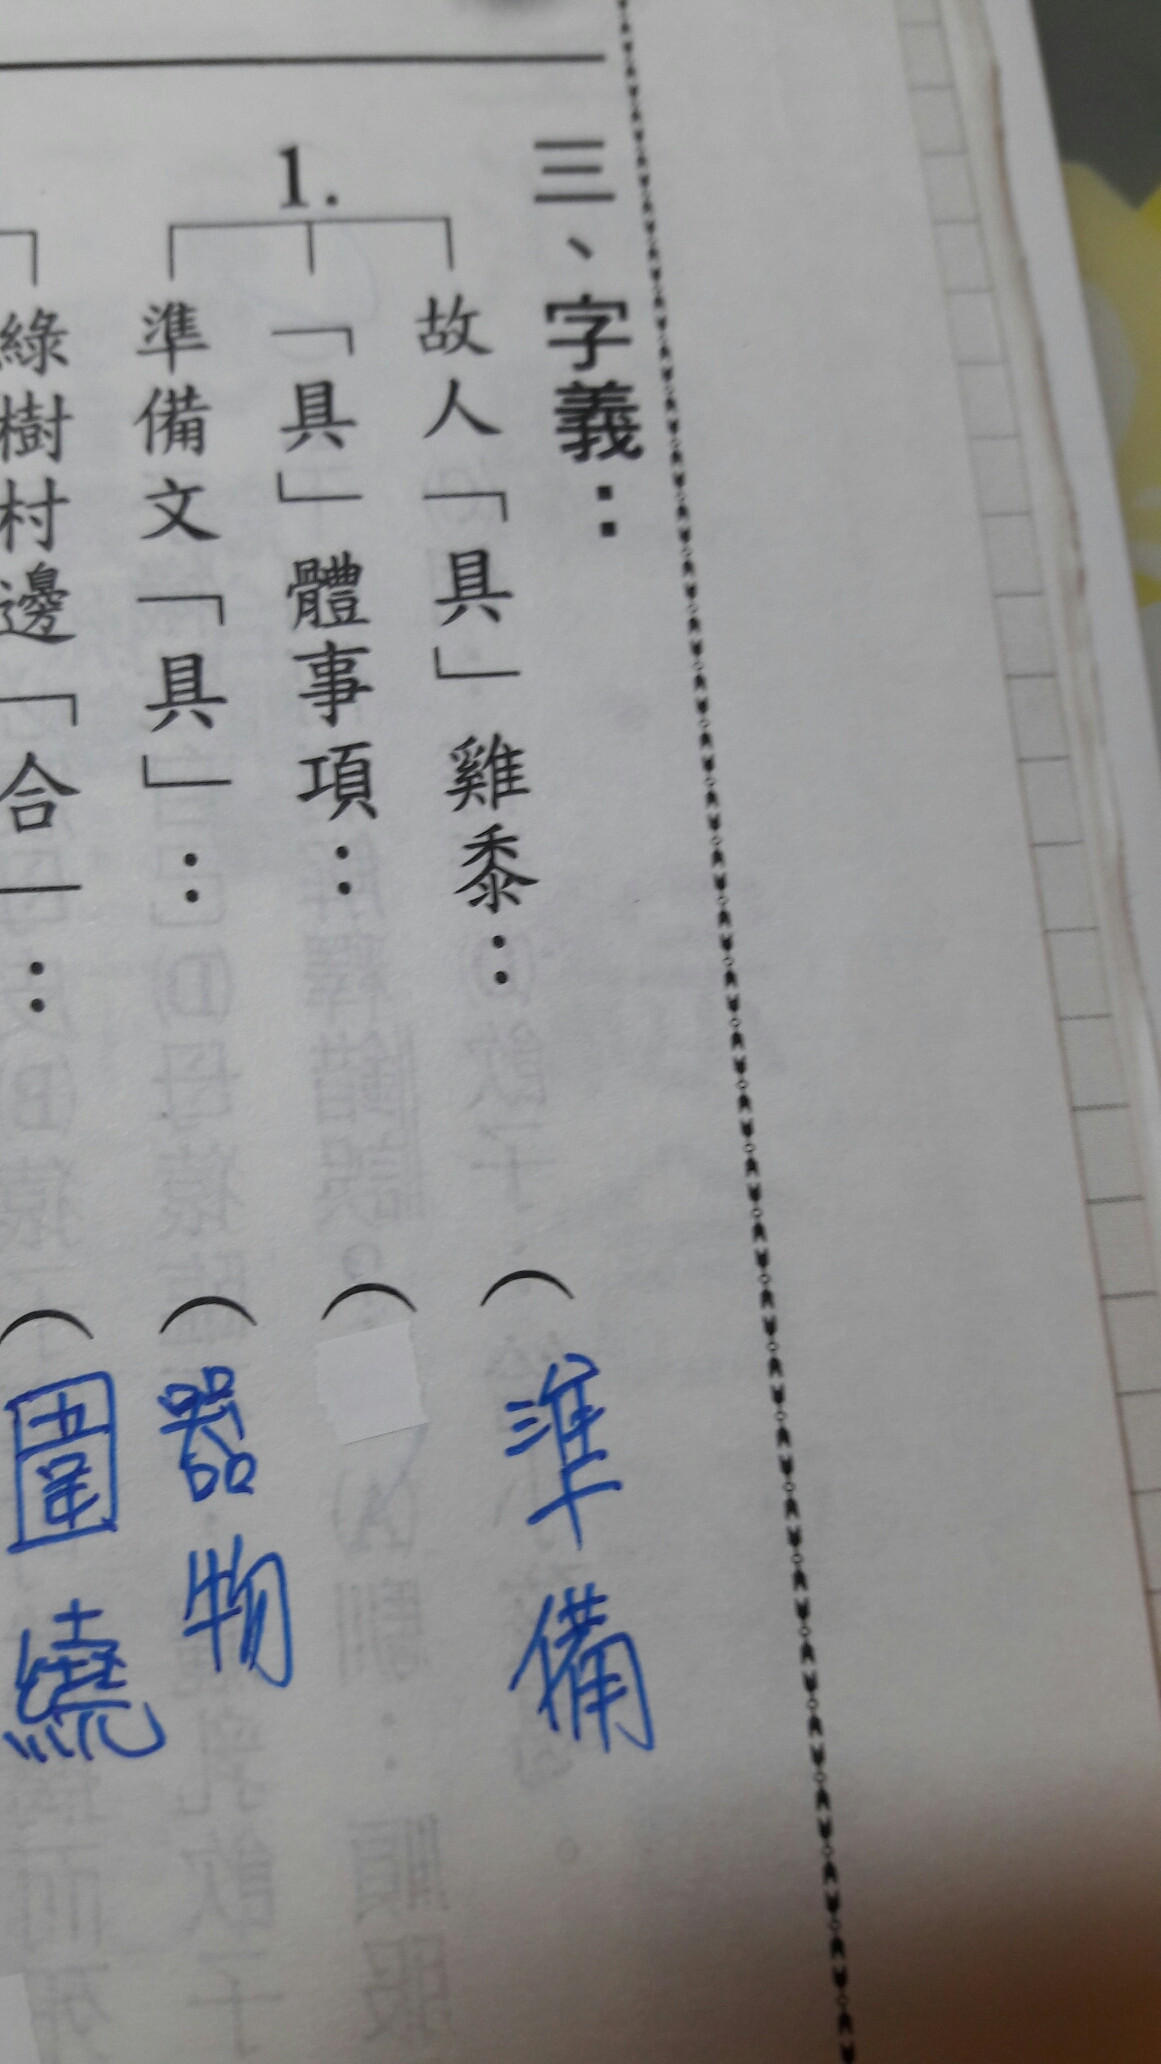 三、字義：
1.
故人「具」雞黍：（準備
「具」體事項：（
準備文「具」：（器物
綠樹村邊「合」：（圍繞